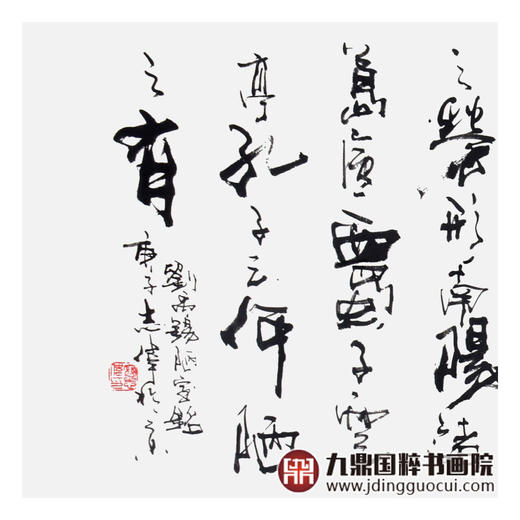 之勞形南陽諸
葛廬西蜀子雲
亭孔子云何陋
之有
劉禹錫陋室銘
庚子志偉於京
九鼎国粹书画院
www.jdingguocui.com